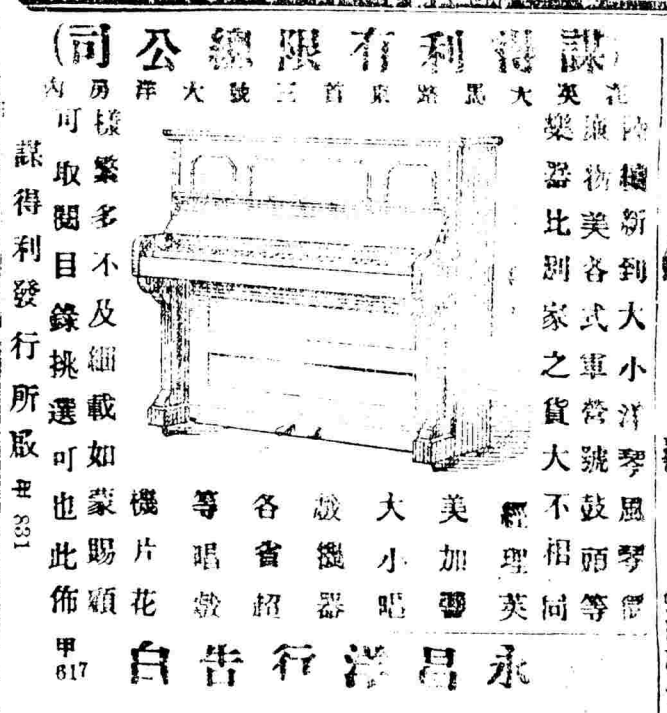 (謀得利有限總公司)
在英大馬路東首三號大洋房內
陸續新到大小洋琴風琴價
廉物美各式軍營號鼓頭等
樂器比別家之貨大不相同
經理英
美加
大小唱
戲機器
各省超
等唱戲
機片花
樣繁多不及細載如蒙賜顧
可取閱目錄挑選可也此佈
甲617
謀得利發行所啟
甲831
永昌洋行告白